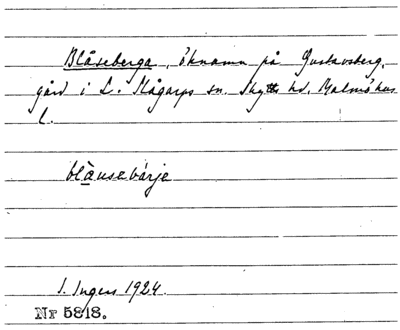 Blåseberga, öknamn på Gustavsberg,
gård i L. Slågarps sn. Skytts hd. Malmöhus
l.
blàusebárje
S. Ingers 1924.
Nr 5818.